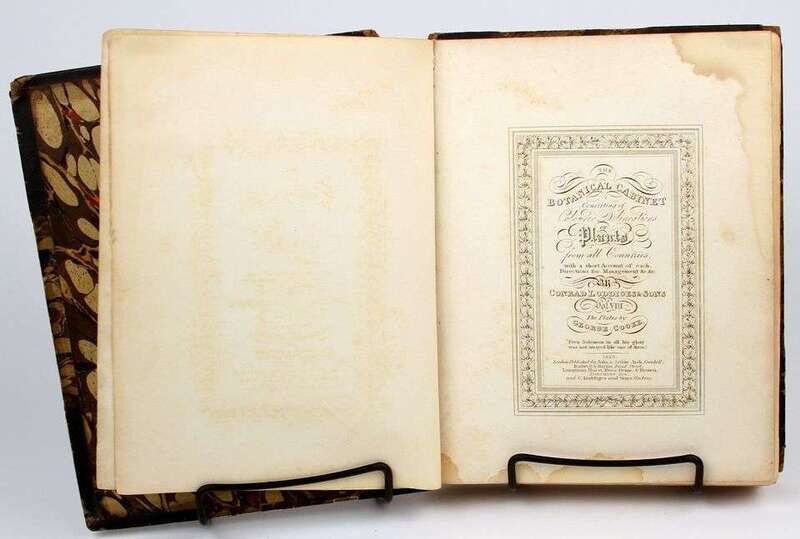 THE
BOTANICAL CABINET
Consisting of
Coloured Delineations
of
Plants
from all Countries
with a short Account of each
Directions for Management &c &c
BY
CONRAD LODDIGES & SONS
Vol VIII
The Plates by
GEORGE COOKE
Even Solomon in all his glory
was not arrayed like one of these
London Published by John & Arthur Arch, Cornhill
Longman, Hurst, Rees, Orme, & Brown,
and C. Loddiges and Sons Hackney